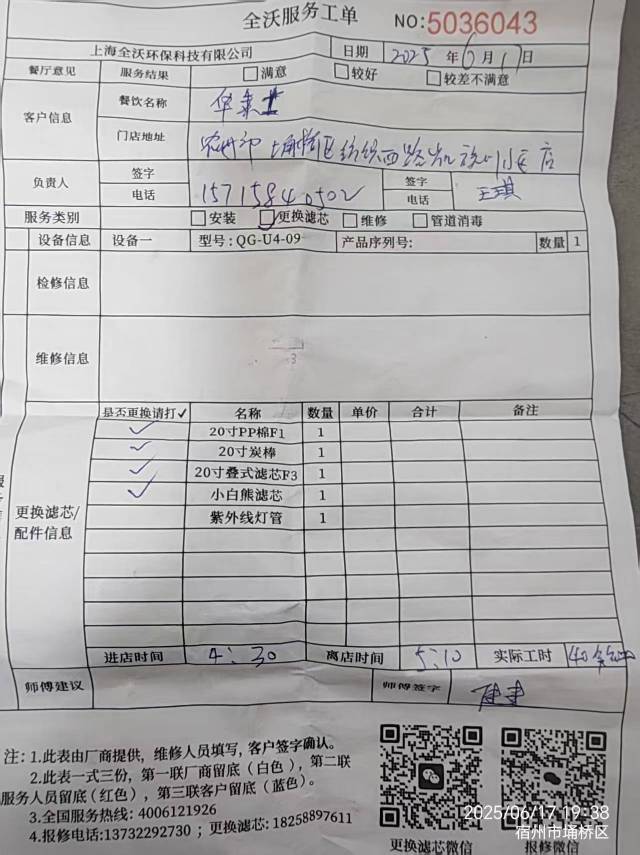 全沃服务工单 NO:5036043
上海全沃环保科技有限公司 日期 2025年6月17日
餐厅意见 服务结果 满意 较好 较差不满意
客户信息 餐饮名称 华莱士
门店地址 埇桥区纺织西路 店
负责人 签字 电话 15715840502 签字 电话 王琪
服务类别 安装 更换滤芯 维修 管道消毒
设备信息 设备一 型号:QG-U4-09 产品序列号: 数量 1
检修信息
维修信息
是否更换请打✓ 名称 数量 单价 合计 备注
更换滤芯/配件信息
✓ 20寸PP棉F1 1
✓ 20寸炭棒 1
✓ 20寸叠式滤芯F3 1
✓ 小白熊滤芯 1
紫外线灯管 1
进店时间 4:30 离店时间 5:10 实际工时 40分钟
师傅建议 师傅签字
注:1.此表由厂商提供,维修人员填写,客户签字确认。
2.此表一式三份,第一联厂商留底(白色),第二联
服务人员留底(红色),第三联客户留底(蓝色)。
3.全国服务热线:4006121926
4.报修电话:13732292730;更换滤芯:18258897611
更换滤芯微信 报修微信
2025/06/17 19:38
宿州市埇桥区